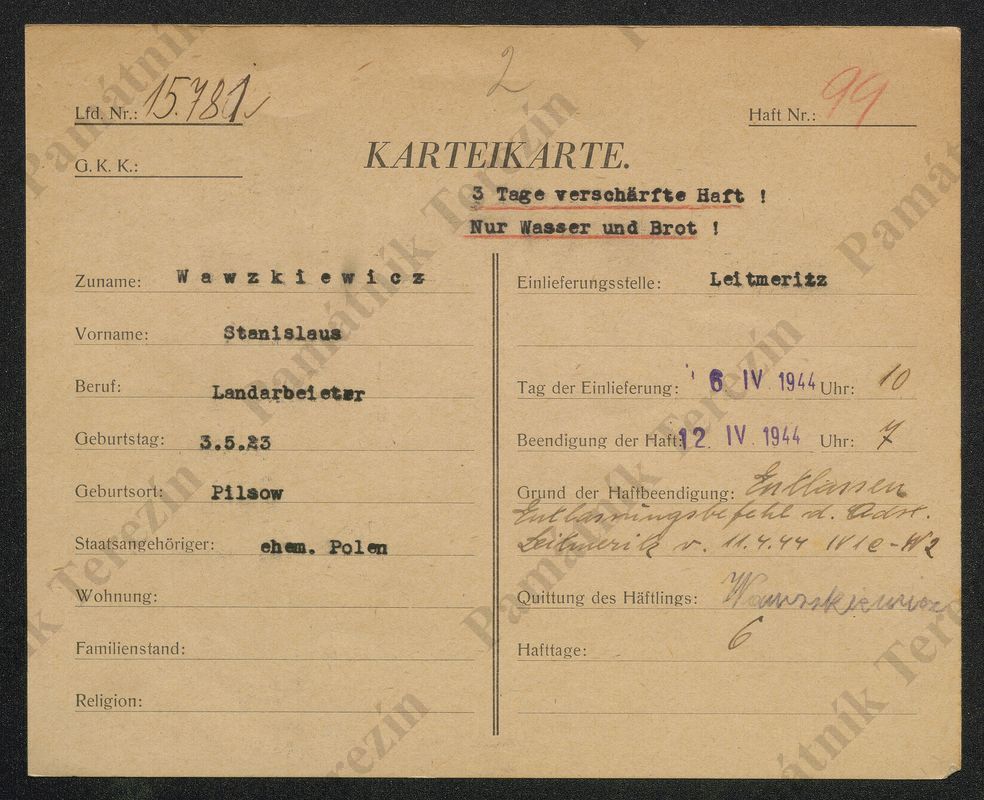 2
Lfd. Nr.: 15.781
Haft Nr.: 99
G. K. K.:
KARTEIKARTE.
3 Tage verschärfte Haft !
Nur Wasser und Brot !
Zuname: Wawzkiewicz
Vorname: Stanislaus
Beruf: Landarbeieter
Geburtstag: 3.5.23
Geburtsort: Pilsow
Staatsangehöriger: ehem. Polen
Wohnung:
Familienstand:
Religion:
Einlieferungsstelle: Leitmeritz
Tag der Einlieferung: 6 IV 1944 Uhr: 10
Beendigung der Haft: 12 IV. 1944 Uhr: 7
Grund der Haftbeendigung: Entlassen
Entlassungsbefehl d. Adst.
Leitmeritz v. 11.4.44 IV 1c-
Quittung des Häftlings:
Hafttage: 6
Památník Terezín